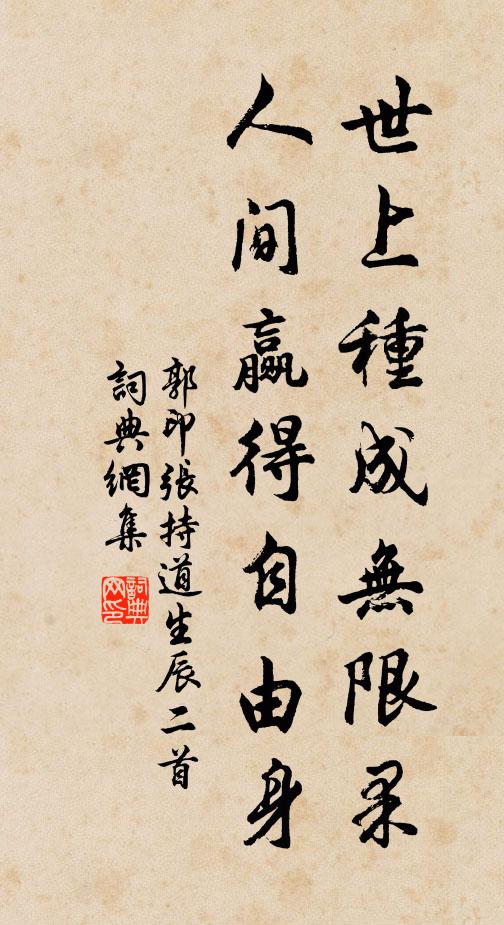 世上種成無限果
人间贏得自由身
郭印張持道生辰二首
詞典網集
詞典網印